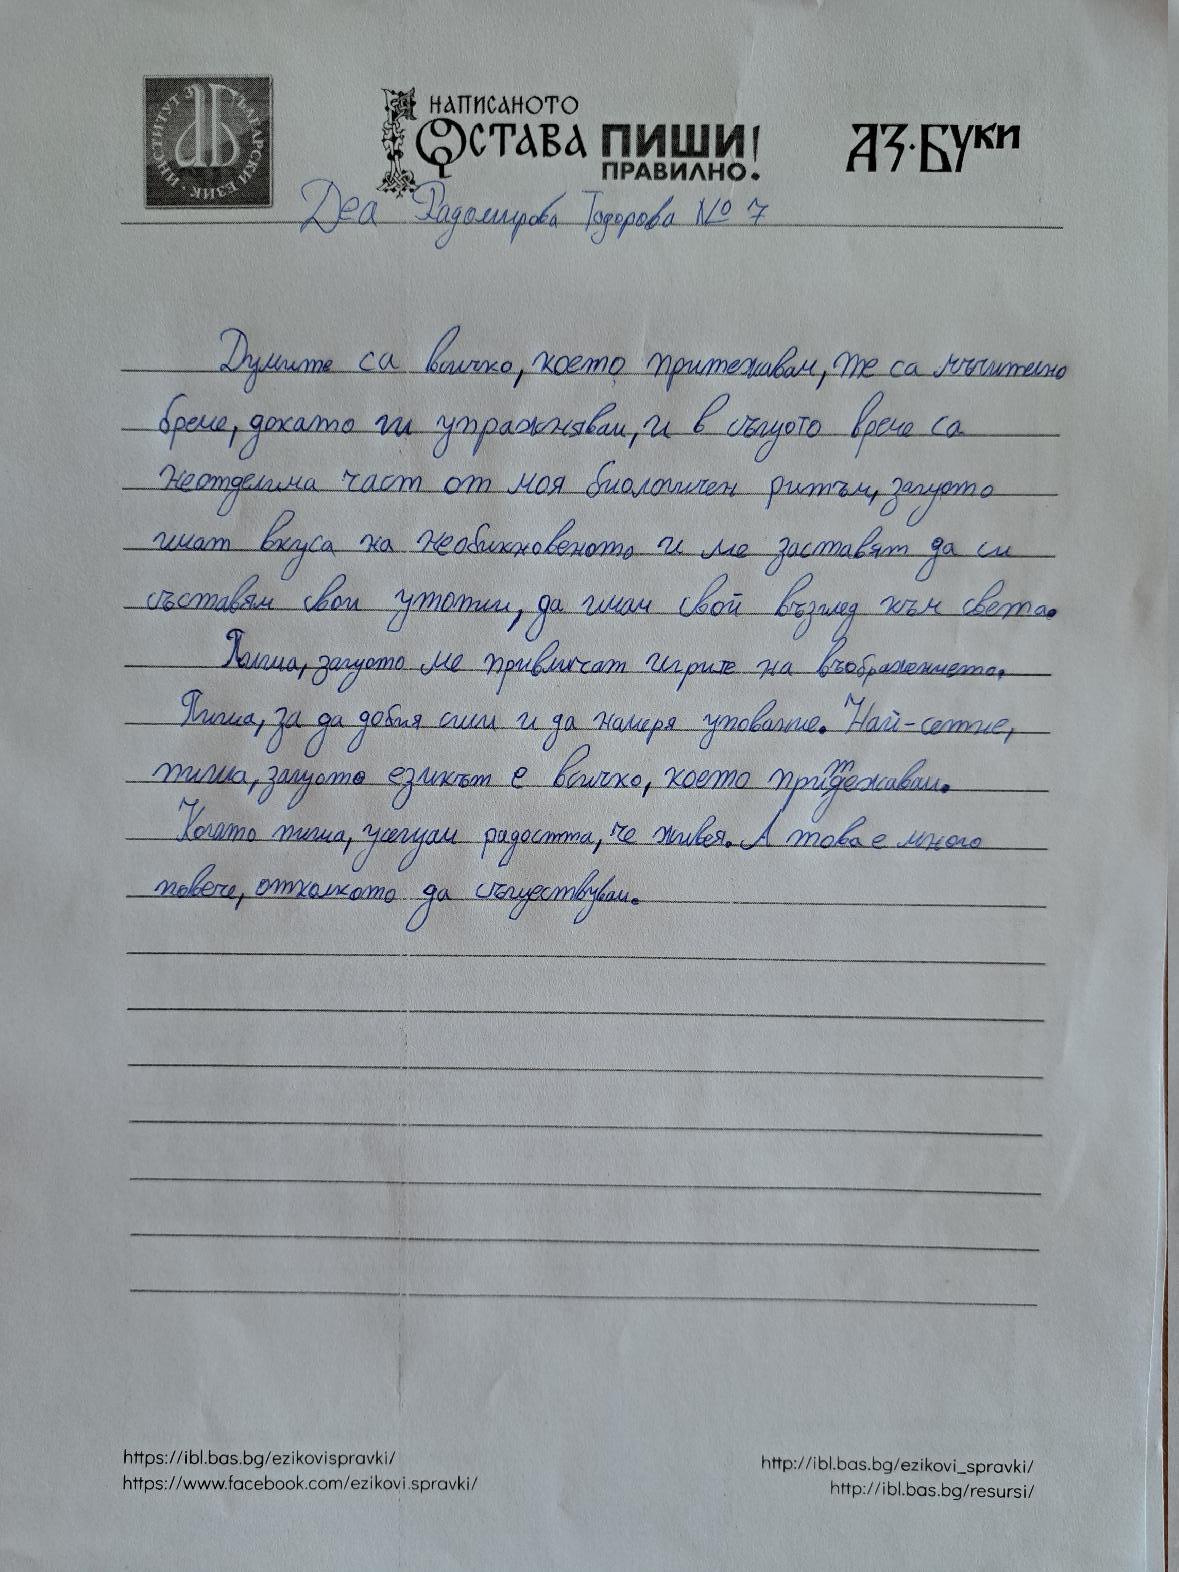 ИНСТИТУТ ЗА БЪЛГАРСКИ ЕЗИК
НАПИСАНОТО
ОСТАВА ПИШИ!
ПРАВИЛНО.
АЗ·БУКИ
Деа Радомирова Тодорова № 7
Думите са всичко, което притежавам, те са мъчително
бреме, докато ги упражнявам, и в същото време са
неотделима част от моя биологичен ритъм, защото
имат вкуса на необикновеното и ме заставят да си
съставям свои утопии, да имам свой възглед към света.
Пиша, защото ме привличат игрите на въображението.
Пиша, за да добия сили и да намеря упование. Най-сетне,
пиша, защото езикът е всичко, което притежавам.
Когато пиша, усещам радостта, че живея. А това е много
повече, отколкото да съществувам.
https://ibl.bas.bg/ezikovispravki/
https://www.facebook.com/ezikovi.spravki/
http://ibl.bas.bg/ezikovi_spravki/
http://ibl.bas.bg/resursi/